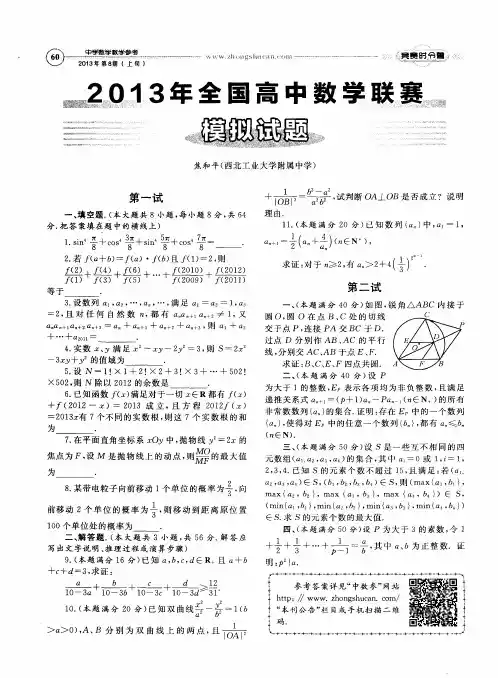 60
中学数学教学参考
2013年第8期（上旬）
www.zhongshucan.com
竞赛时令营
2013年全国高中数学联赛
模拟试题
焦和平(西北工业大学附属中学)
第一试
一、填空题.(本大题共8小题,每小题8分,共64
分.把答案填在题中的横线上)
1. sin⁴ π/8 + cos⁴ 3π/8 + sin⁴ 5π/8 + cos⁴ 7π/8 = ____.
2.若 f(a+b)=f(a)·f(b)且 f(1)=2,则
f(2)/f(1) + f(4)/f(3) + f(6)/f(5) + … + f(2010)/f(2009) + f(2012)/f(2011)
等于____.
3.设数列 a₁,a₂,…,aₙ,…,满足 a₁=a₂=1,a₃
=2,且对任何自然数 n,都有 aₙaₙ₊₁aₙ₊₂≠1,又
aₙaₙ₊₁aₙ₊₂aₙ₊₃=aₙ+aₙ₊₁+aₙ₊₂+aₙ₊₃,则 a₁+a₂
+…+a₂₀₁₁=____.
4.实数 x、y 满足 x²−xy−2y²=3,则 S=2x²
−3xy+y² 的值域为____.
5.设 N=1!×1+2!×2+3!×3+…+502!
×502,则 N 除以 2012 的余数是____.
6.已知函数 f(x)满足对于一切 x∈R 都有 f(x)
+f(2012−x)=2013 成立,且方程 2012f(x)
=2013x有 7 个不同的实数根,则这 7 个实数根的和
为____.
7.在平面直角坐标系 xOy 中,抛物线 y²=2x 的
焦点为 F,设 M 是抛物线上的动点,则 MO/MF 的最大值
为____.
8.某带电粒子向前移动 1 个单位的概率为 2/3,向
前移动 2 个单位的概率为 1/3,则移动到距离原位置
100 个单位处的概率为____.
二、解答题.(本大题共 3 小题,共 56 分.解答应
写出文字说明、推理过程或演算步骤)
9.(本题满分 16 分)已知 a,b,c,d∈R₊且 a+b
+c+d=3,求证:
a/(10−3a) + b/(10−3b) + c/(10−3c) + d/(10−3d) ≥ 12/31.
10.(本题满分 20 分)已知双曲线 x²/a² − y²/b² = 1(b
>a>0),A、B 分别为双曲线上的两点,且 1/|OA|²
+ 1/|OB|² = (b²−a²)/(a²b²),试判断 OA⊥OB 是否成立？说明
理由.
11.(本题满分 20 分)已知数列{aₙ}中,a₁=1,
aₙ₊₁ = 1/2 (aₙ + 4/aₙ)(n∈N*),
求证:对于 n≥2,有
第二试
一、(本题满分 40 分)如图,锐角△ABC 内接于
圆 O,圆 O 在点 B、C 处的切线
交于点 P,连接 PA 交 BC 于 D,
过点 D 分别作 AB、AC 的平行
线,分别交 AC、AB 于点 E、F.
求证:B、C、E、F 四点共圆.
C
P
E
D
O
A
F
B
二、(本题满分 40 分)设 P
为大于 1 的整数,Eₚ 表示各项均为非负整数,且满足
递推关系式 aₙ₊₁=(p+1)aₙ−Paₙ₋₁(n∈N₊)的所有
非常数数列{aₙ}的集合.证明:存在 Eₚ 中的一个数列
{aₙ},使得对 Eₚ 中的任意一个数列{bₙ},都有 aₙ≤bₙ
(n∈N).
三、(本题满分 50 分)设 S 是一些互不相同的四
元数组(a₁,a₂,a₃,a₄)的集合,其中 aᵢ=0 或 1,i=1,
2,3,4.已知 S 的元素个数不超过 15,且满足:若(a₁,
a₂,a₃,a₄)∈S,(b₁,b₂,b₃,b₄)∈S,则(max{a₁,b₁},
max{a₂,b₂},max{a₃,b₃},max{a₄,b₄})∈S,
(min{a₁,b₁},min{a₂,b₂},min{a₃,b₃},min{a₄,b₄})
∈S.求 S 的元素个数的最大值.
四、(本题满分 50 分)设 P 为大于 3 的素数,令 1
+ 1/2 + 1/3 + … + 1/(p−1) = a/b,其中 a、b 为正整数.证
明:p²|a.
参考答案详见“中数参”网站
http://www.zhongshucan.com/
“本刊公告”栏目或手机扫描二维
码.